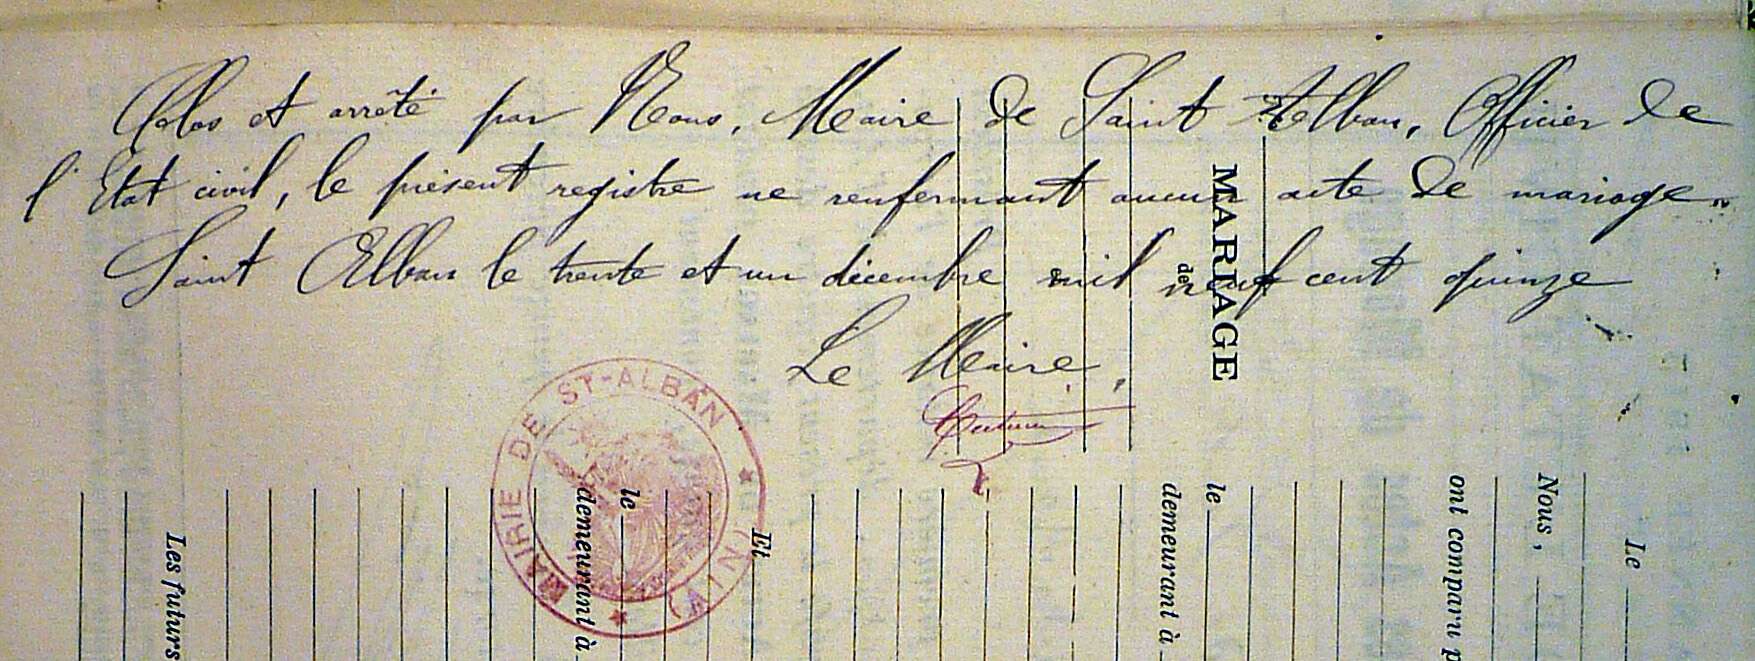 Clos et arrêté par Nous, Maire de Saint Alban, Officier de
l'Etat civil, le présent registre ne renfermant aucun acte de mariage.
Saint Alban le trente et un décembre mil neuf cent quinze
Le Maire,
MAIRIE DE ST-ALBAN (AIN)
MARIAGE
de
Le
Nous,
ont comparu p
le
demeurant à
Et
le
demeurant à
Les futurs